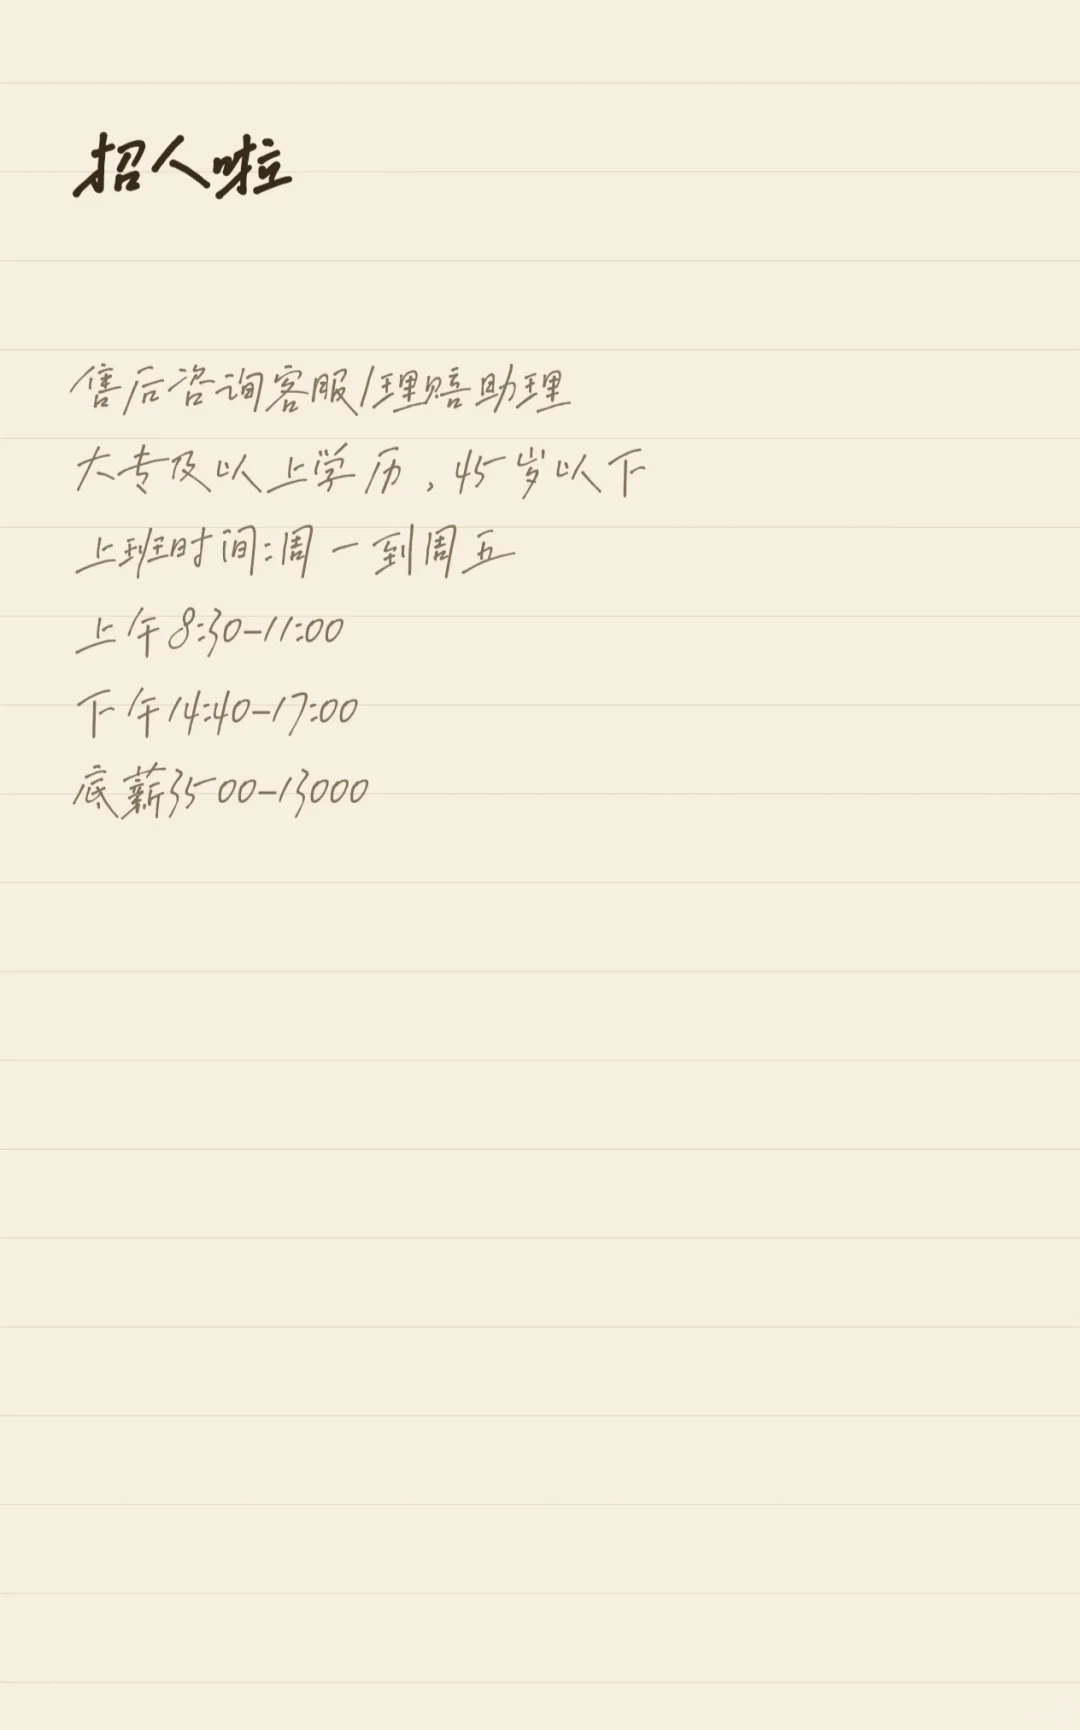 招人啦
售后咨询客服/理赔助理
大专及以上学历，45岁以下
上班时间:周一到周五
上午8:30-11:00
下午14:40-17:00
底薪3500-13000